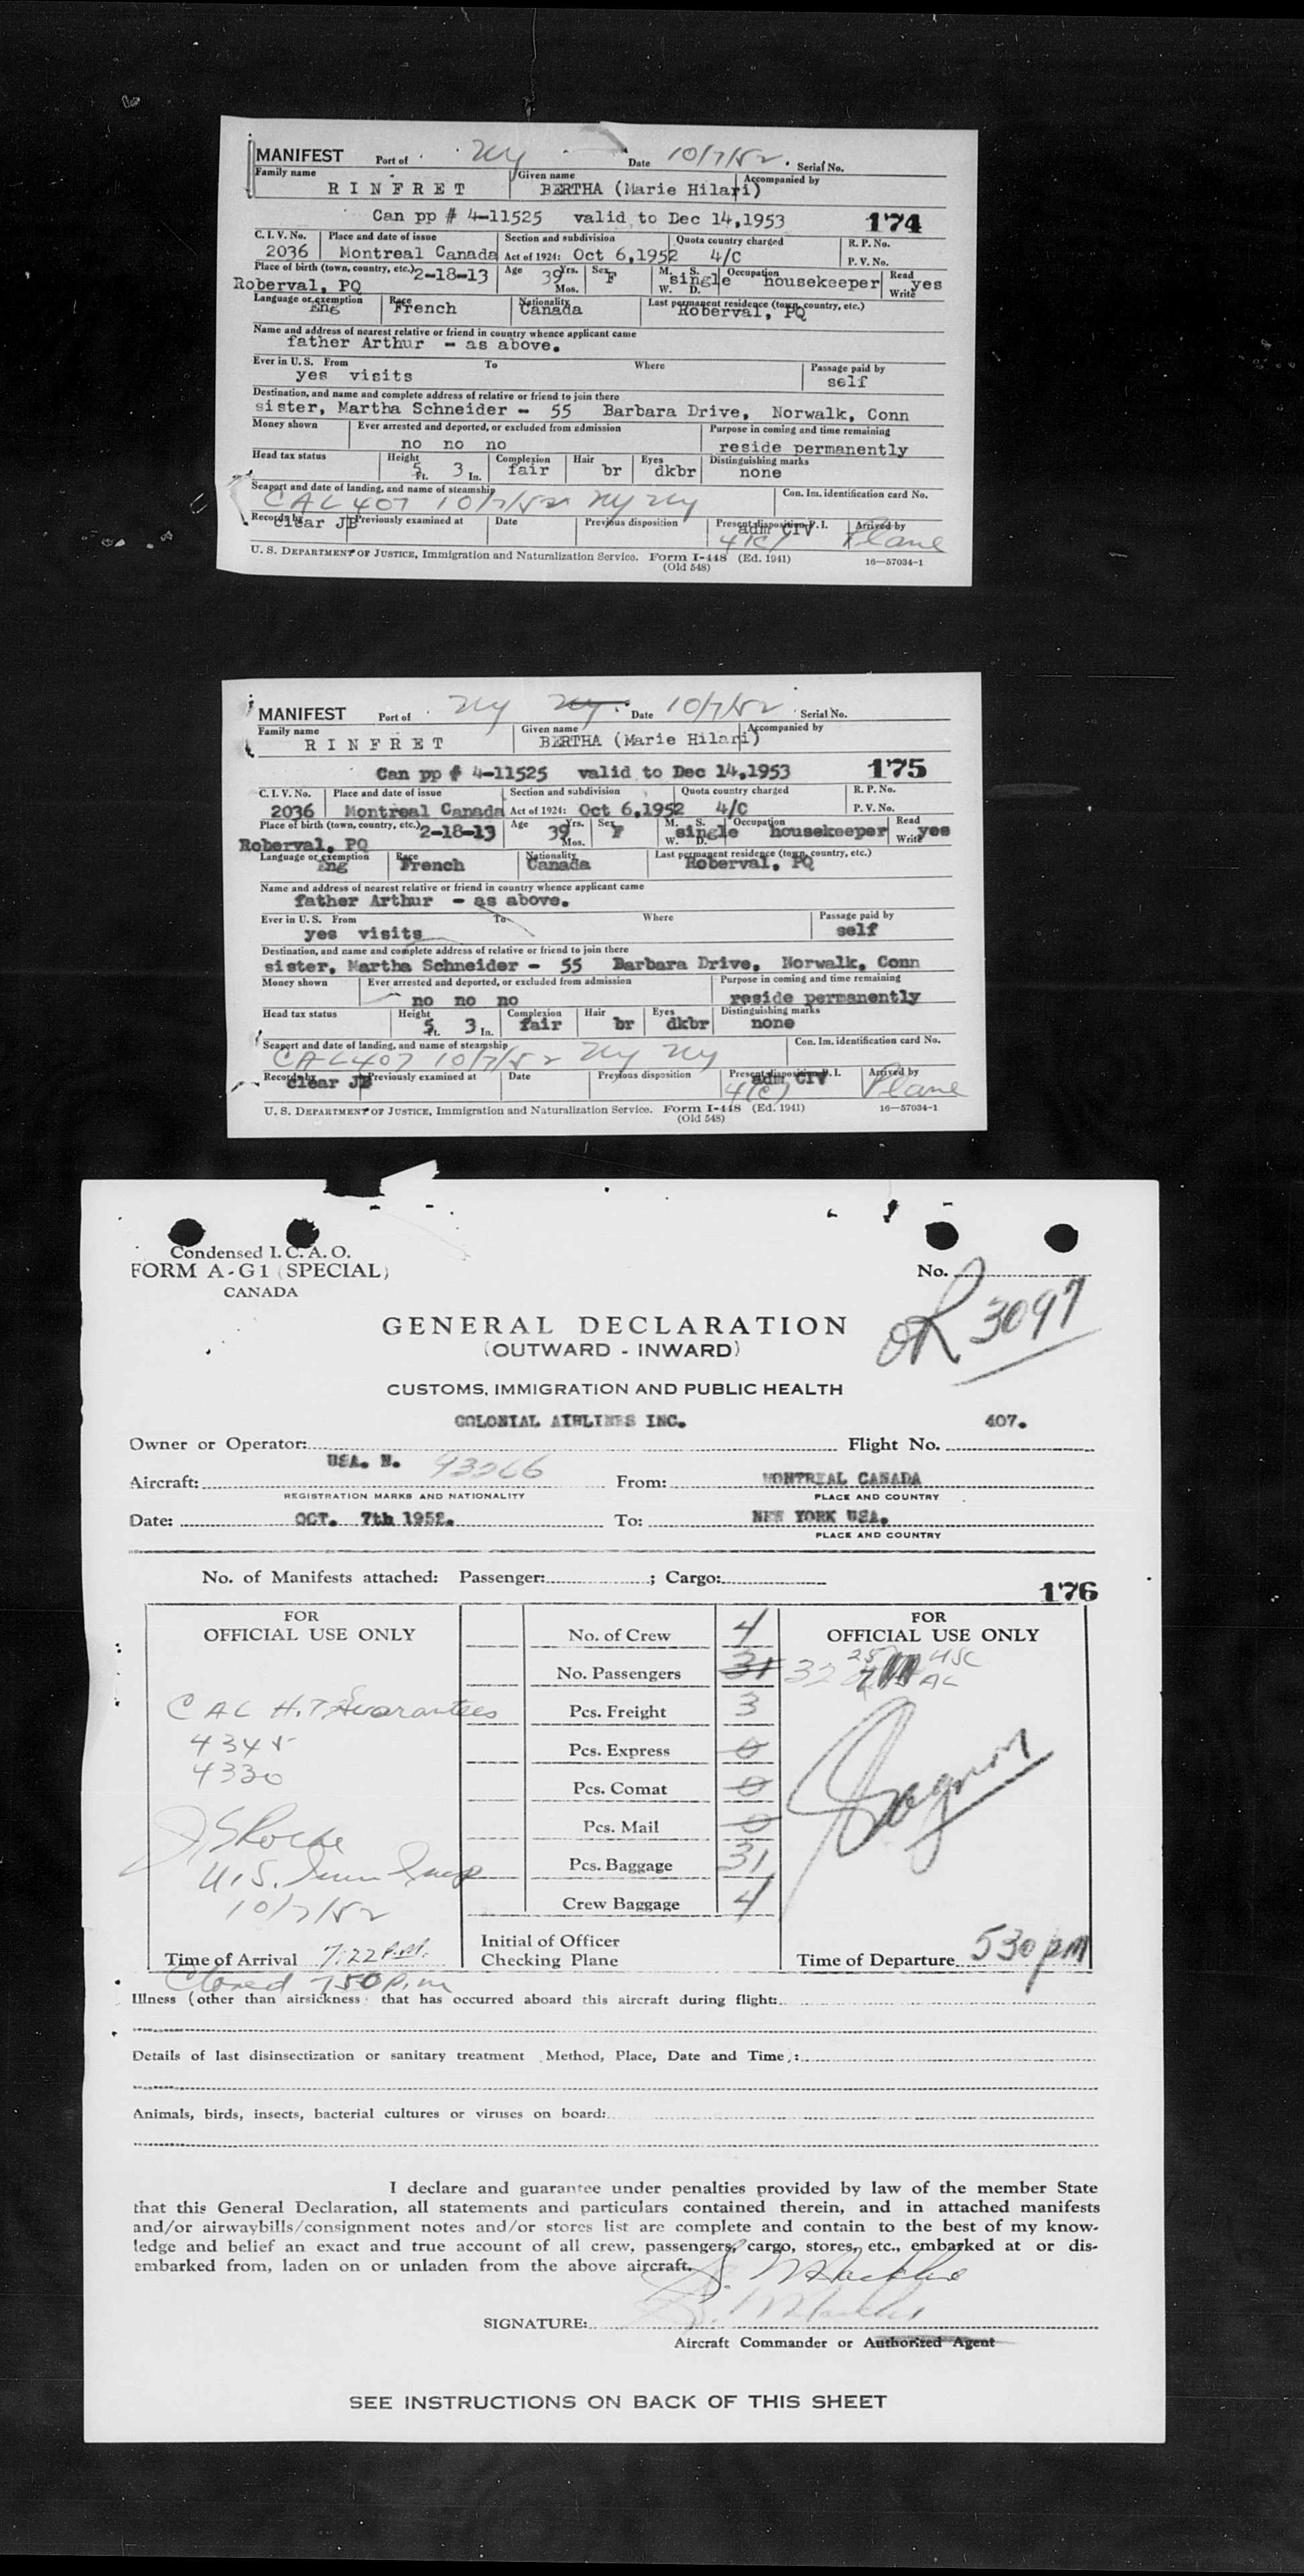 MANIFEST Port of NY Date 10/7/52 Serial No.
Family name Given name Accompanied by
RINFRET BERTHA (Marie Hilari)
Can pp # 4-11525 valid to Dec 14,1953 174
C. I. V. No. Place and date of issue Section and subdivision Quota country charged R. P. No.
2036 Montreal Canada Act of 1924: Oct 6,1952 4/C P. V. No.
Place of birth (town, country, etc.) 2-18-13 Age 39 Yrs. Mos. Sex F M. S. W. D. single Occupation housekeeper Read Write yes
Roberval, PQ
Language or exemption Race Nationality Last permanent residence (town, country, etc.)
Eng French Canada Roberval, PQ
Name and address of nearest relative or friend in country whence applicant came
father Arthur - as above.
Ever in U. S. From To Where Passage paid by
yes visits self
Destination, and name and complete address of relative or friend to join there
sister, Martha Schneider - 55 Barbara Drive, Norwalk, Conn
Money shown Ever arrested and deported, or excluded from admission Purpose in coming and time remaining
no no no reside permanently
Head tax status Height Complexion Hair Eyes Distinguishing marks
5 Ft. 3 In. fair br dkbr none
Seaport and date of landing, and name of steamship Con. Im. identification card No.
CAL 407 10/7/52 NY NY
Records by Previously examined at Date Previous disposition Present disposition P. I. Arrived by
clear JB adm CIV 4(c) Plane
U. S. DEPARTMENT OF JUSTICE, Immigration and Naturalization Service. Form I-448 (Ed. 1941) 16—57034-1
(Old 548)
MANIFEST Port of NY NY. Date 10/7/52 Serial No.
Family name Given name Accompanied by
RINFRET BERTHA (Marie Hilari)
Can pp # 4-11525 valid to Dec 14,1953 175
C. I. V. No. Place and date of issue Section and subdivision Quota country charged R. P. No.
2036 Montreal Canada Act of 1924: Oct 6,1952 4/C P. V. No.
Place of birth (town, country, etc.) 2-18-13 Age 39 Yrs. Mos. Sex F M. S. W. D. single Occupation housekeeper Read Write yes
Roberval, PQ
Language or exemption Race Nationality Last permanent residence (town, country, etc.)
Eng French Canada Roberval, PQ
Name and address of nearest relative or friend in country whence applicant came
father Arthur - as above.
Ever in U. S. From To Where Passage paid by
yes visits self
Destination, and name and complete address of relative or friend to join there
sister, Martha Schneider - 55 Barbara Drive, Norwalk, Conn
Money shown Ever arrested and deported, or excluded from admission Purpose in coming and time remaining
no no no reside permanently
Head tax status Height Complexion Hair Eyes Distinguishing marks
5 Ft. 3 In. fair br dkbr none
Seaport and date of landing, and name of steamship Con. Im. identification card No.
CAL 407 10/7/52 NY NY
Records by Previously examined at Date Previous disposition Present disposition P. I. Arrived by
clear JB adm CIV 4(c) Plane
U. S. DEPARTMENT OF JUSTICE, Immigration and Naturalization Service. Form I-448 (Ed. 1941) 16—57034-1
(Old 548)
Condensed I. C. A. O.
FORM A-G1 (SPECIAL) No.
CANADA
OK 3097
GENERAL DECLARATION
(OUTWARD - INWARD)
CUSTOMS, IMMIGRATION AND PUBLIC HEALTH
COLONIAL AIRLINES INC. 407.
Owner or Operator: Flight No.
USA. N.
Aircraft: From: MONTREAL CANADA
REGISTRATION MARKS AND NATIONALITY PLACE AND COUNTRY
Date: OCT. 7th 1952. To: NEW YORK USA.
PLACE AND COUNTRY
No. of Manifests attached: Passenger: ; Cargo:
176
FOR OFFICIAL USE ONLY
CAL H.T Guarantees
4345
4330
U.S. Imm Insp
10/7/52
Time of Arrival 7:22 P.M.
Closed 750 P.m
No. of Crew 4
No. Passengers 31 32
Pcs. Freight 3
Pcs. Express 0
Pcs. Comat 0
Pcs. Mail 0
Pcs. Baggage 31
Crew Baggage 4
Initial of Officer
Checking Plane
FOR
OFFICIAL USE ONLY
25 USC
AL
Time of Departure 530 pm
Illness (other than airsickness) that has occurred aboard this aircraft during flight:
Details of last disinsectization or sanitary treatment (Method, Place, Date and Time):
Animals, birds, insects, bacterial cultures or viruses on board:
I declare and guarantee under penalties provided by law of the member State
that this General Declaration, all statements and particulars contained therein, and in attached manifests
and/or airwaybills/consignment notes and/or stores list are complete and contain to the best of my know-
ledge and belief an exact and true account of all crew, passengers, cargo, stores, etc., embarked at or dis-
embarked from, laden on or unladen from the above aircraft.
SIGNATURE:
Aircraft Commander or Authorized Agent
SEE INSTRUCTIONS ON BACK OF THIS SHEET